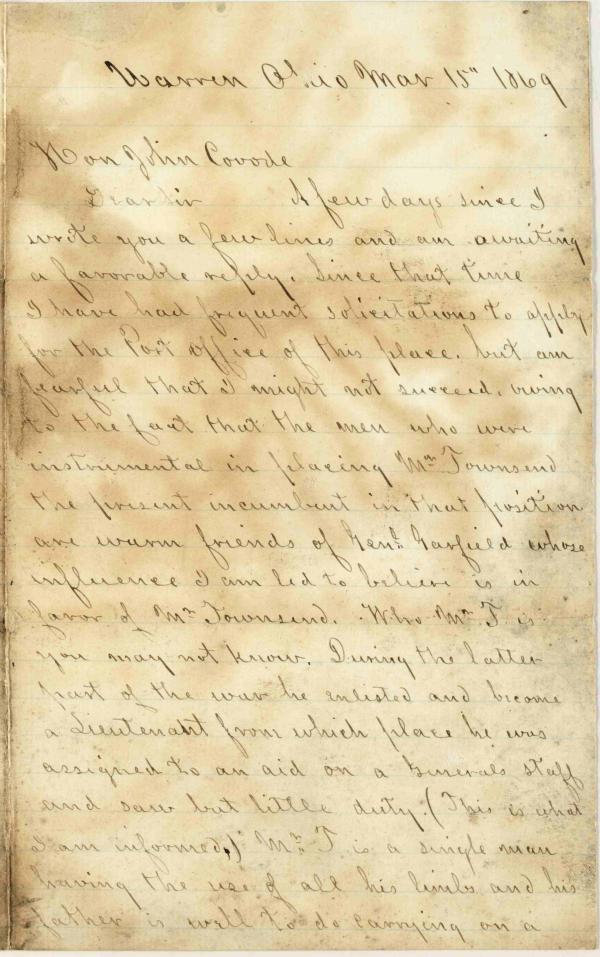 Warren Ohio Mar 15" 1869
Hon John Covode
Dear Sir A few days since I
wrote you a few lines and am awaiting
a favorable reply. Since that time
I have had frequent solicitations to apply
for the Post Office of this place. but am
fearful that I might not succeed. owing
to the fact that the men who were
instrumental in placing Mr. Townsend
the present incumbent in that position
are warm friends of Genl. Garfield whose
influence I am led to believe is in
favor of Mr. Townsend. Who Mr. T is
you may not know. During the latter
part of the war he enlisted and become
a Lieutenant from which place he was
assigned to an aid on a Generals staff
and saw but little duty. (This is what
I am informed,) Mr. T is a single man
having the use of all his limbs and his
father is well to do carrying on a